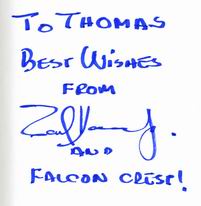 To Thomas
Best Wishes
FROM
AND
FALCON CREST!